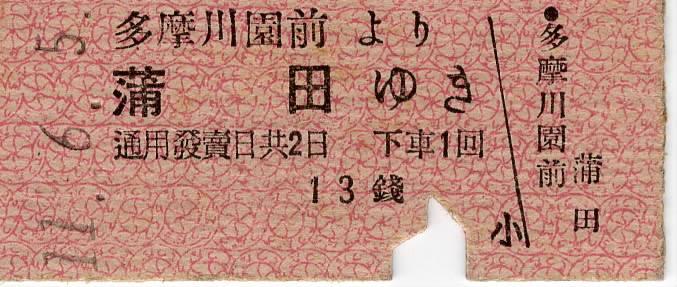 多摩川園前より
蒲田ゆき
通用發賣日共2日 下車1回
13錢
小
多摩川園前
蒲田
11. 6. 5.